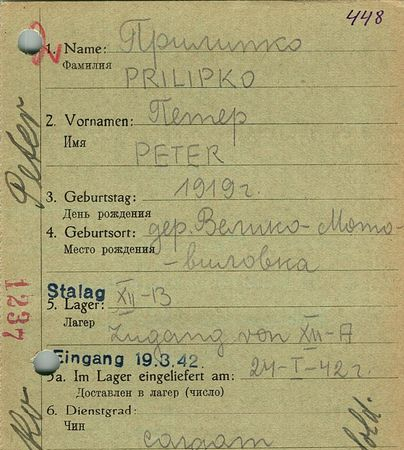 448
2
1. Name: Прилипко
Фамилия
PRILIPKO
2. Vornamen: Петер
Имя
PETER
3. Geburtstag: 1919 г.
День рождения
4. Geburtsort: дер. Велико-Мото-
Место рождения -виловка
Stalag
5. Lager: XII-B
Лагер
Zugang von XII-A
Eingang 19.3.42.
5a. Im Lager eingeliefert am: 24-I-42 г.
Доставлен в лагер (число)
6. Dienstgrad:
Чин
солдат
Peter
1237
Sold.